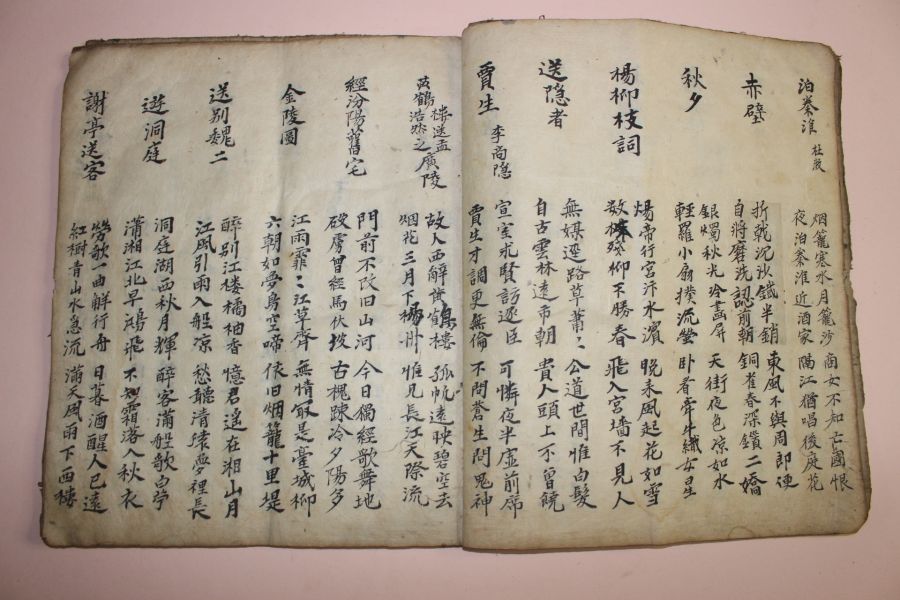 泊秦淮 杜牧
烟籠寒水月籠沙
夜泊秦淮近酒家
商女不知亡國恨
隔江猶唱後庭花
赤壁
折戟沉沙鐵半銷
自將磨洗認前朝
東風不與周郎便
銅雀春深鎖二嬌
秋夕
銀燭秋光冷畫屏
輕羅小扇撲流螢
天街夜色凉如水
卧看牽牛織女星
楊柳枝詞
煬帝行宮汴水濱
數株殘柳不勝春
晚來風起花如雪
飛入宮墻不見人
送隱者
無媒逕路草萧〻
自古雲林遠市朝
公道世間惟白髮
貴人頭上不曾饒
賈生 李商隱
宣室求賢訪逐臣
賈生才調更無倫
可憐夜半虛前席
不問蒼生問鬼神
黄鶴楼送孟浩然之廣陵
故人西辭黄鶴楼
烟花三月下楊州
孤帆遠映碧空去
惟見長江天際流
經汾陽舊宅
門前不改旧山河
破虜曾經馬伏波
今日獨經歌舞地
古槐踈冷夕陽多
金陵圖
江雨霏〻江草齊
六朝如夢鳥空啼
無情最是臺城柳
依旧烟籠十里堤
送别魏二
醉别江楼橘柚香
江風引雨入船凉
憶君遥在湘山月
愁聽清猿夢裡長
遊洞庭
洞庭湖西秋月輝
瀟湘江北早鴻飛
醉客滿船歌白苧
不知霜落入秋衣
謝亭送客
勞歌一曲解行舟
紅樹青山水急流
日暮酒醒人已遠
滿天風雨下西楼